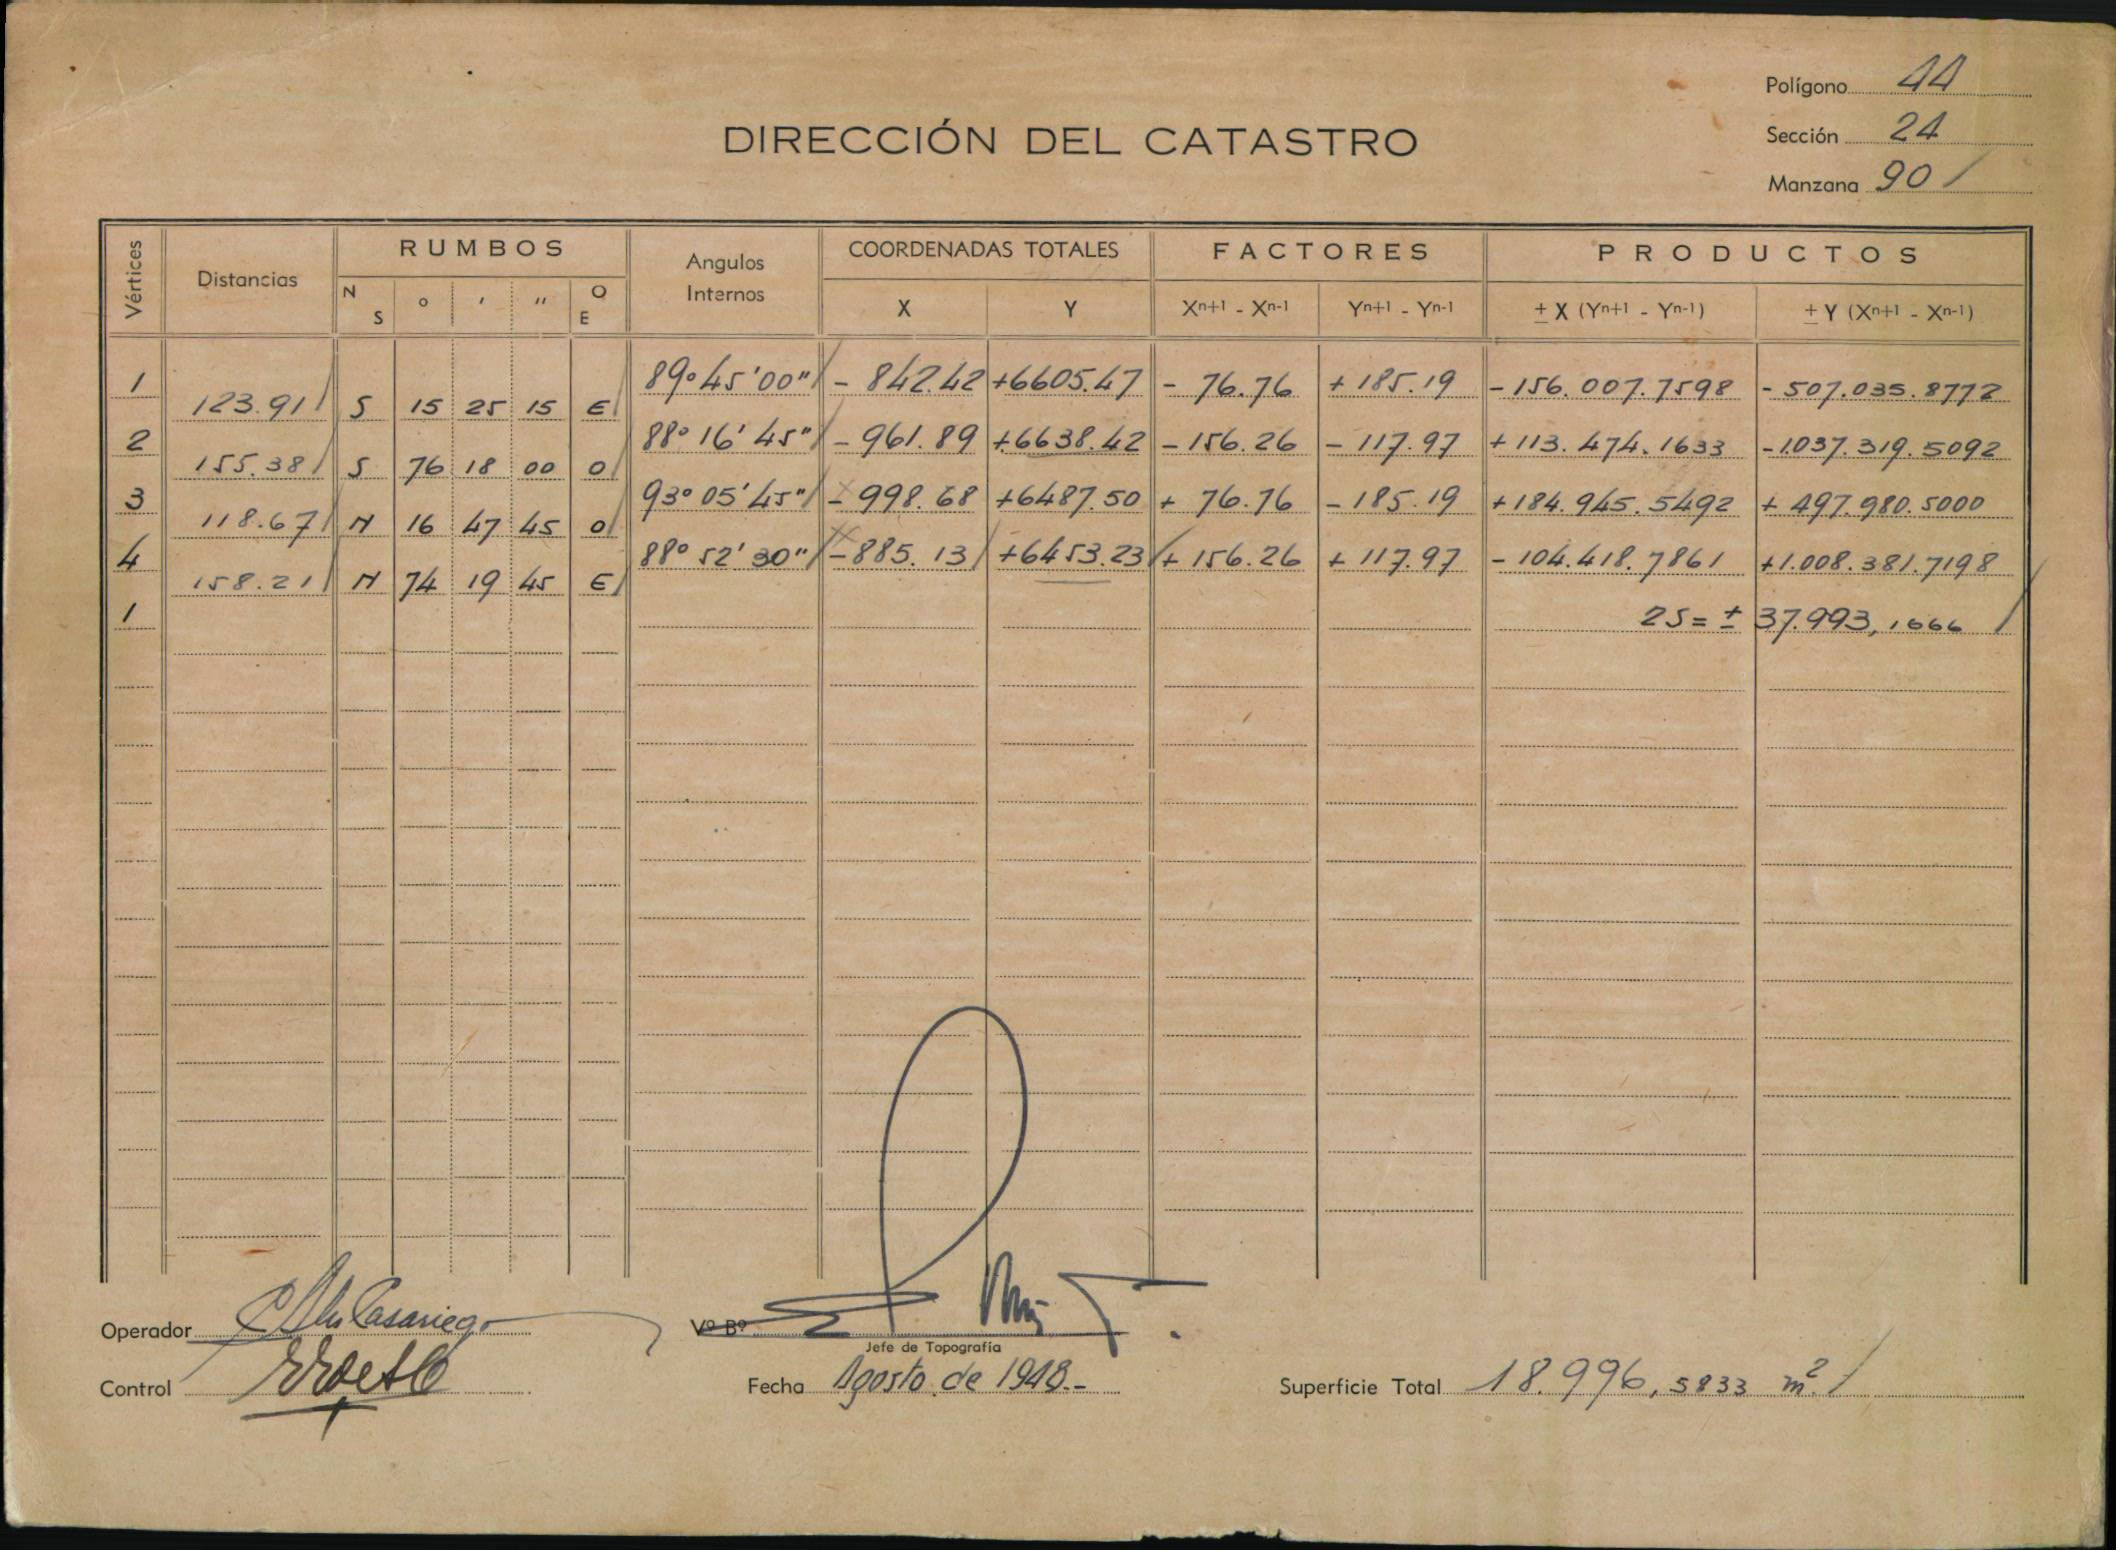 Polígono 44
DIRECCIÓN DEL CATASTRO
Sección 24
Manzana 90
Vértices Distancias RUMBOS Angulos Internos COORDENADAS TOTALES FACTORES PRODUCTOS
N S ° ' '' O E X Y Xⁿ⁺¹ - Xⁿ⁻¹ Yⁿ⁺¹ - Yⁿ⁻¹ ± X (Yⁿ⁺¹ - Yⁿ⁻¹) ± Y (Xⁿ⁺¹ - Xⁿ⁻¹)
1 89° 45' 00" - 842.42 +6605.47 - 76.76 + 185.19 - 156.007.7598 - 507.035.8772
123.91 S 15 25 15 E
2 88° 16' 45" - 961.89 +6638.42 - 156.26 - 117.97 + 113.474.1633 - 1.037.319.5092
155.38 S 76 18 00 O
3 93° 05' 45" - 998.68 +6487.50 + 76.76 - 185.19 + 184.945.5492 + 497.980.5000
118.67 N 16 47 45 O
4 88° 52' 30" - 885.13 +6453.23 + 156.26 + 117.97 - 104.418.7861 + 1.008.381.7198
158.21 N 74 19 45 E
1 2S = ± 37.993,1666
Operador Casariego Vº Bº
Jefe de Topografía
Control Fecha Agosto de 1948.- Superficie Total 18.996,5833 m².